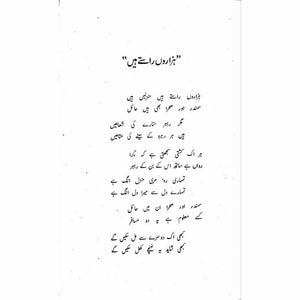 "ہزاروں راستے ہیں"
ہزاروں راستے ہیں منزلیں ہیں
سمندر اور صحرا بھی ہیں حائل
مگر رہبر ستارے کی شعاعیں
ہیں ہر رہرو کے سینے کی متاعیں
ہر اک کشتی سمجھتی ہے کہ تارا
رواں ہے ساتھ اس کے بن کے رہبر
تمہاری رہ مری منزل الگ ہے
تمہارے دل سے میرا دل الگ ہے
سمندر اور صحرا ان میں حائل
کسے معلوم ہے یہ دو مسافر
کبھی اک دوسرے سے مل سکیں گے
کبھی شاید یہ غنچے کھل سکیں گے